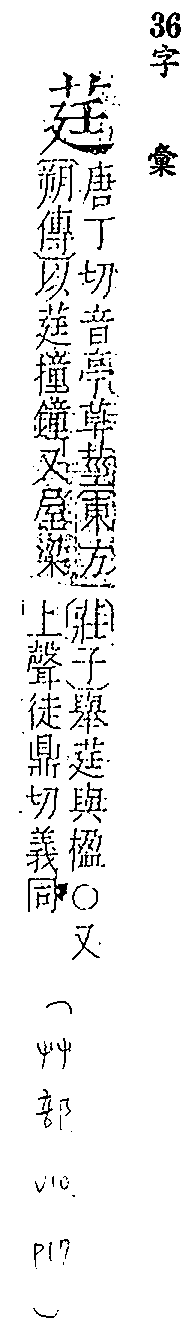 36字 彙
莛
唐丁切音亭草莖東方
朔傳以莛撞鐘又屋梁
莊子舉莛與楹○又
上聲徒鼎切義同
(艸部 V10. P17)